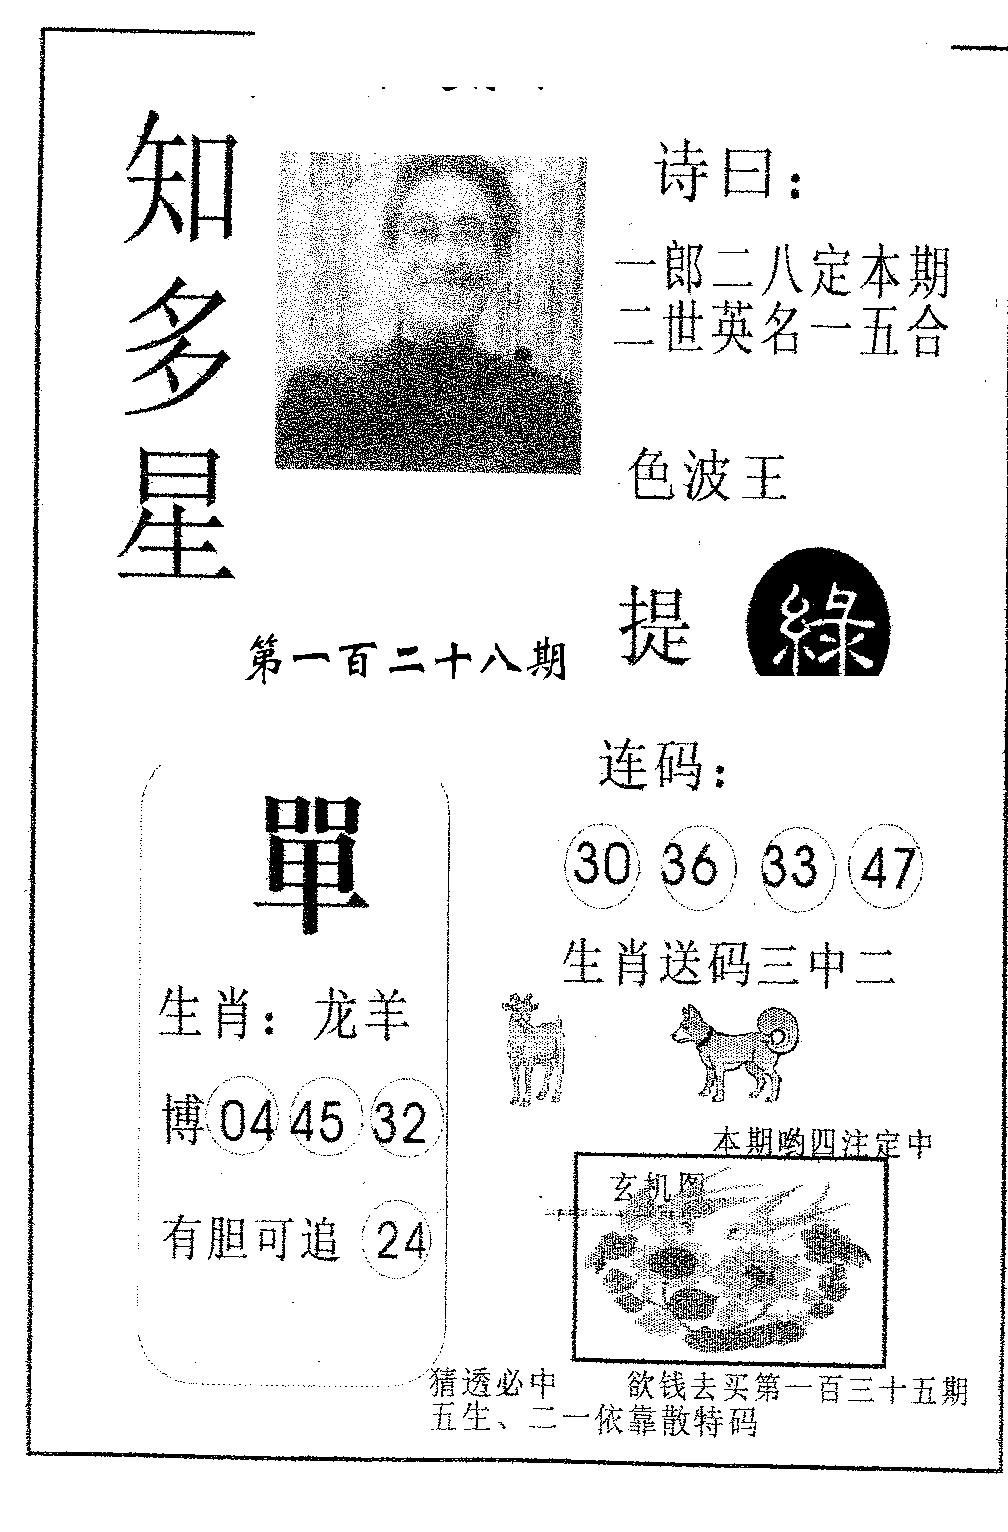 知多星
诗曰：
一郎二八定本期
二世英名一五合
色波王
提 綠
第一百二十八期
連码：
30 36 33 47
生肖送码三中二
單
生肖：龙羊
博 04 45 32
有胆可追 24
本期哟四注定中
玄机图
猜透必中 欲钱去买第一百三十五期
五生、二一依靠散特码